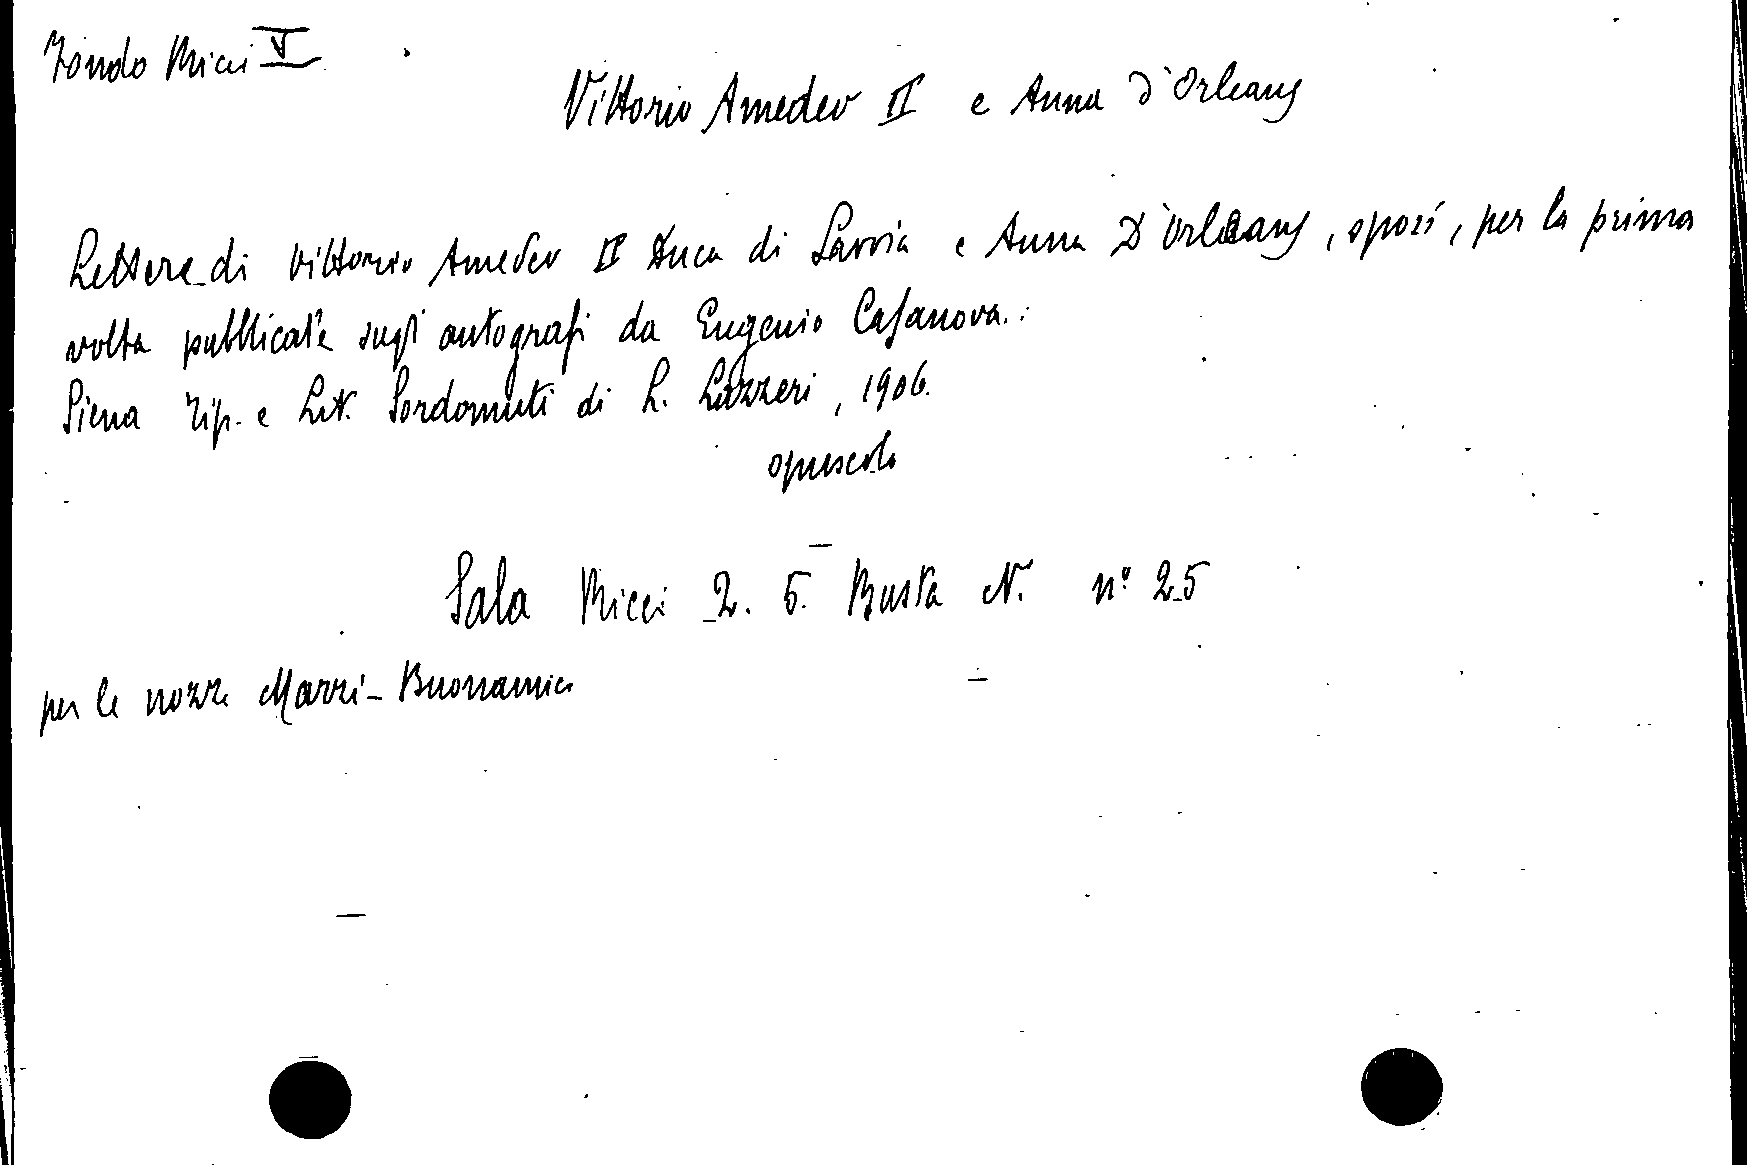 Fondo Ricci V
Vittorio Amedeo II e Anna d'Orleans
Lettere di Vittorio Amedeo II Duca di Savoia e Anna D'Orleans, sposi, per la prima
volta pubblicate sugli autografi da Eugenio Casanova.
Siena Tip. e Lit. Sordomuti di L. Lazzeri, 1906.
opuscolo
Sala Ricci 2. 5. Busta N. n° 25
per le nozze Marri-Buonamici